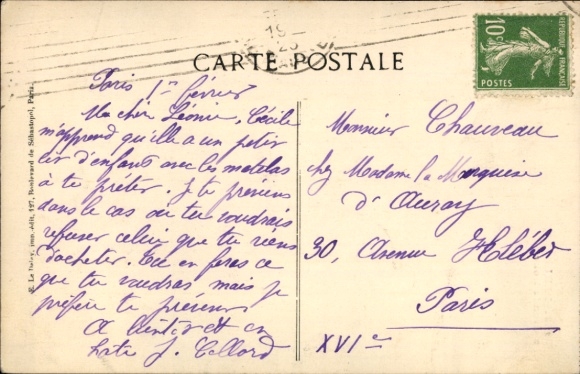 CARTE POSTALE
10c
REPUBLIQUE FRANÇAISE
POSTES
E. Le Deley, imp.-édit., 127, Boulevard de Sébastopol, Paris.
Paris 1er février
Ma chère Léonie, Cécile
m'apprend qu'elle a un petit
lit d'enfant avec les matelas
à te prêter. Je te préviens
dans le cas où tu voudrais
refuser celui que tu viens
d'acheter. Tu en feras ce
que tu voudras mais je
préfère te prévenir
A bientôt et en
hâte J. Collord
Monsieur Chauveau
chez Madame la Marquise
d'Auray
30, Avenue Kléber
Paris
XVIe